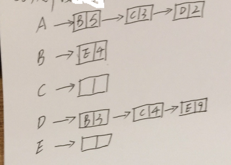 A → B 5 → C 3 → D 2
B → E 4
C →
D → B 3 → C 4 → E 9
E →